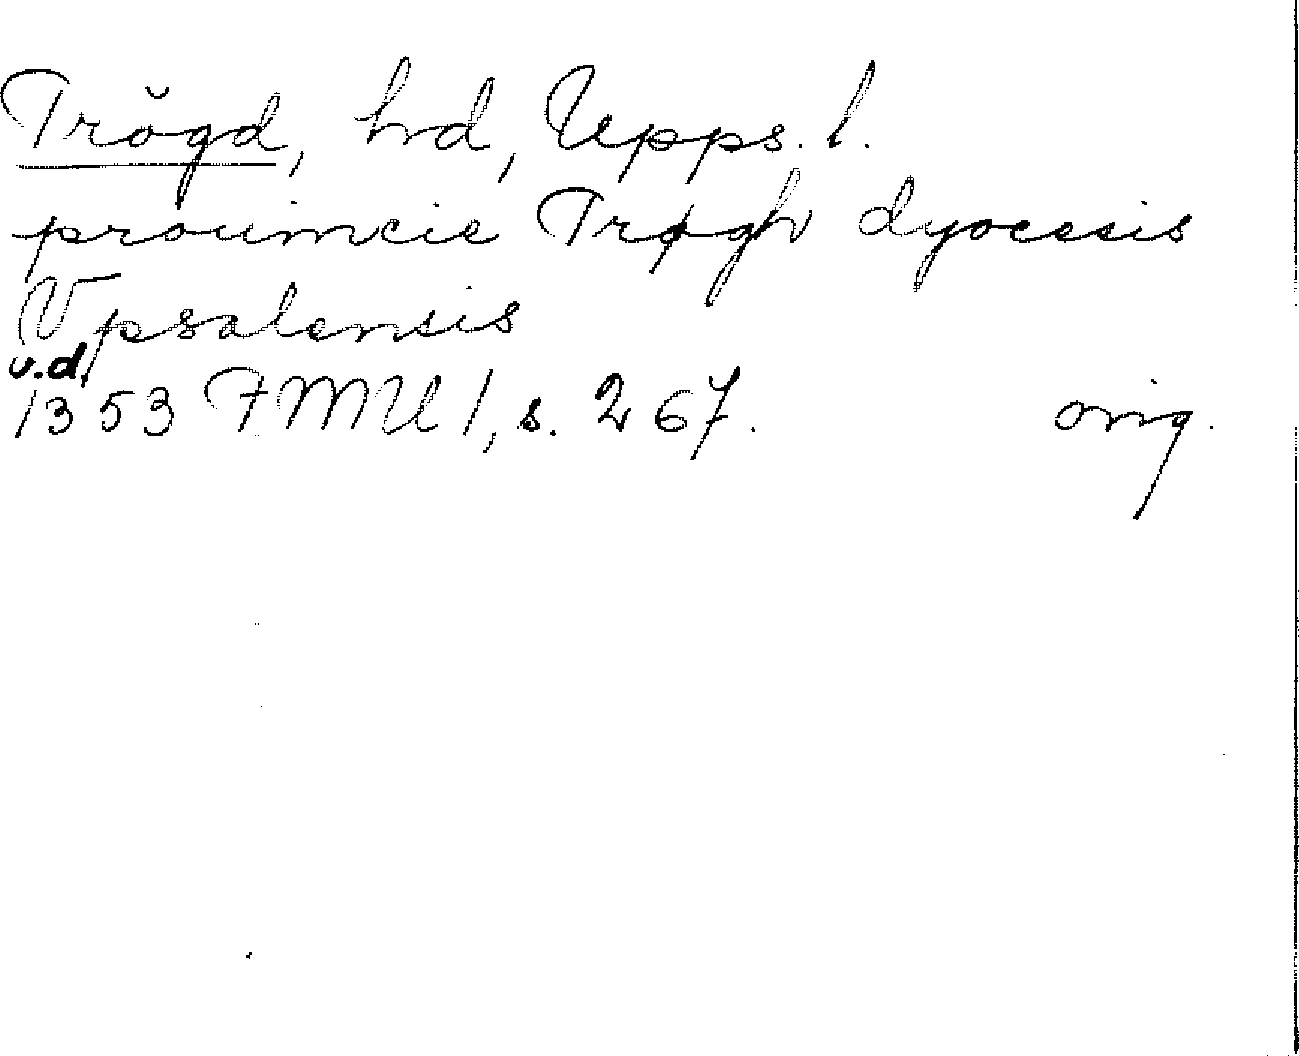 Trögd, hd, Upps. l.
prouincie Trøgh dyocesis
Vpsalensis
u.d.
1353 FMU 1, s. 267. orig.